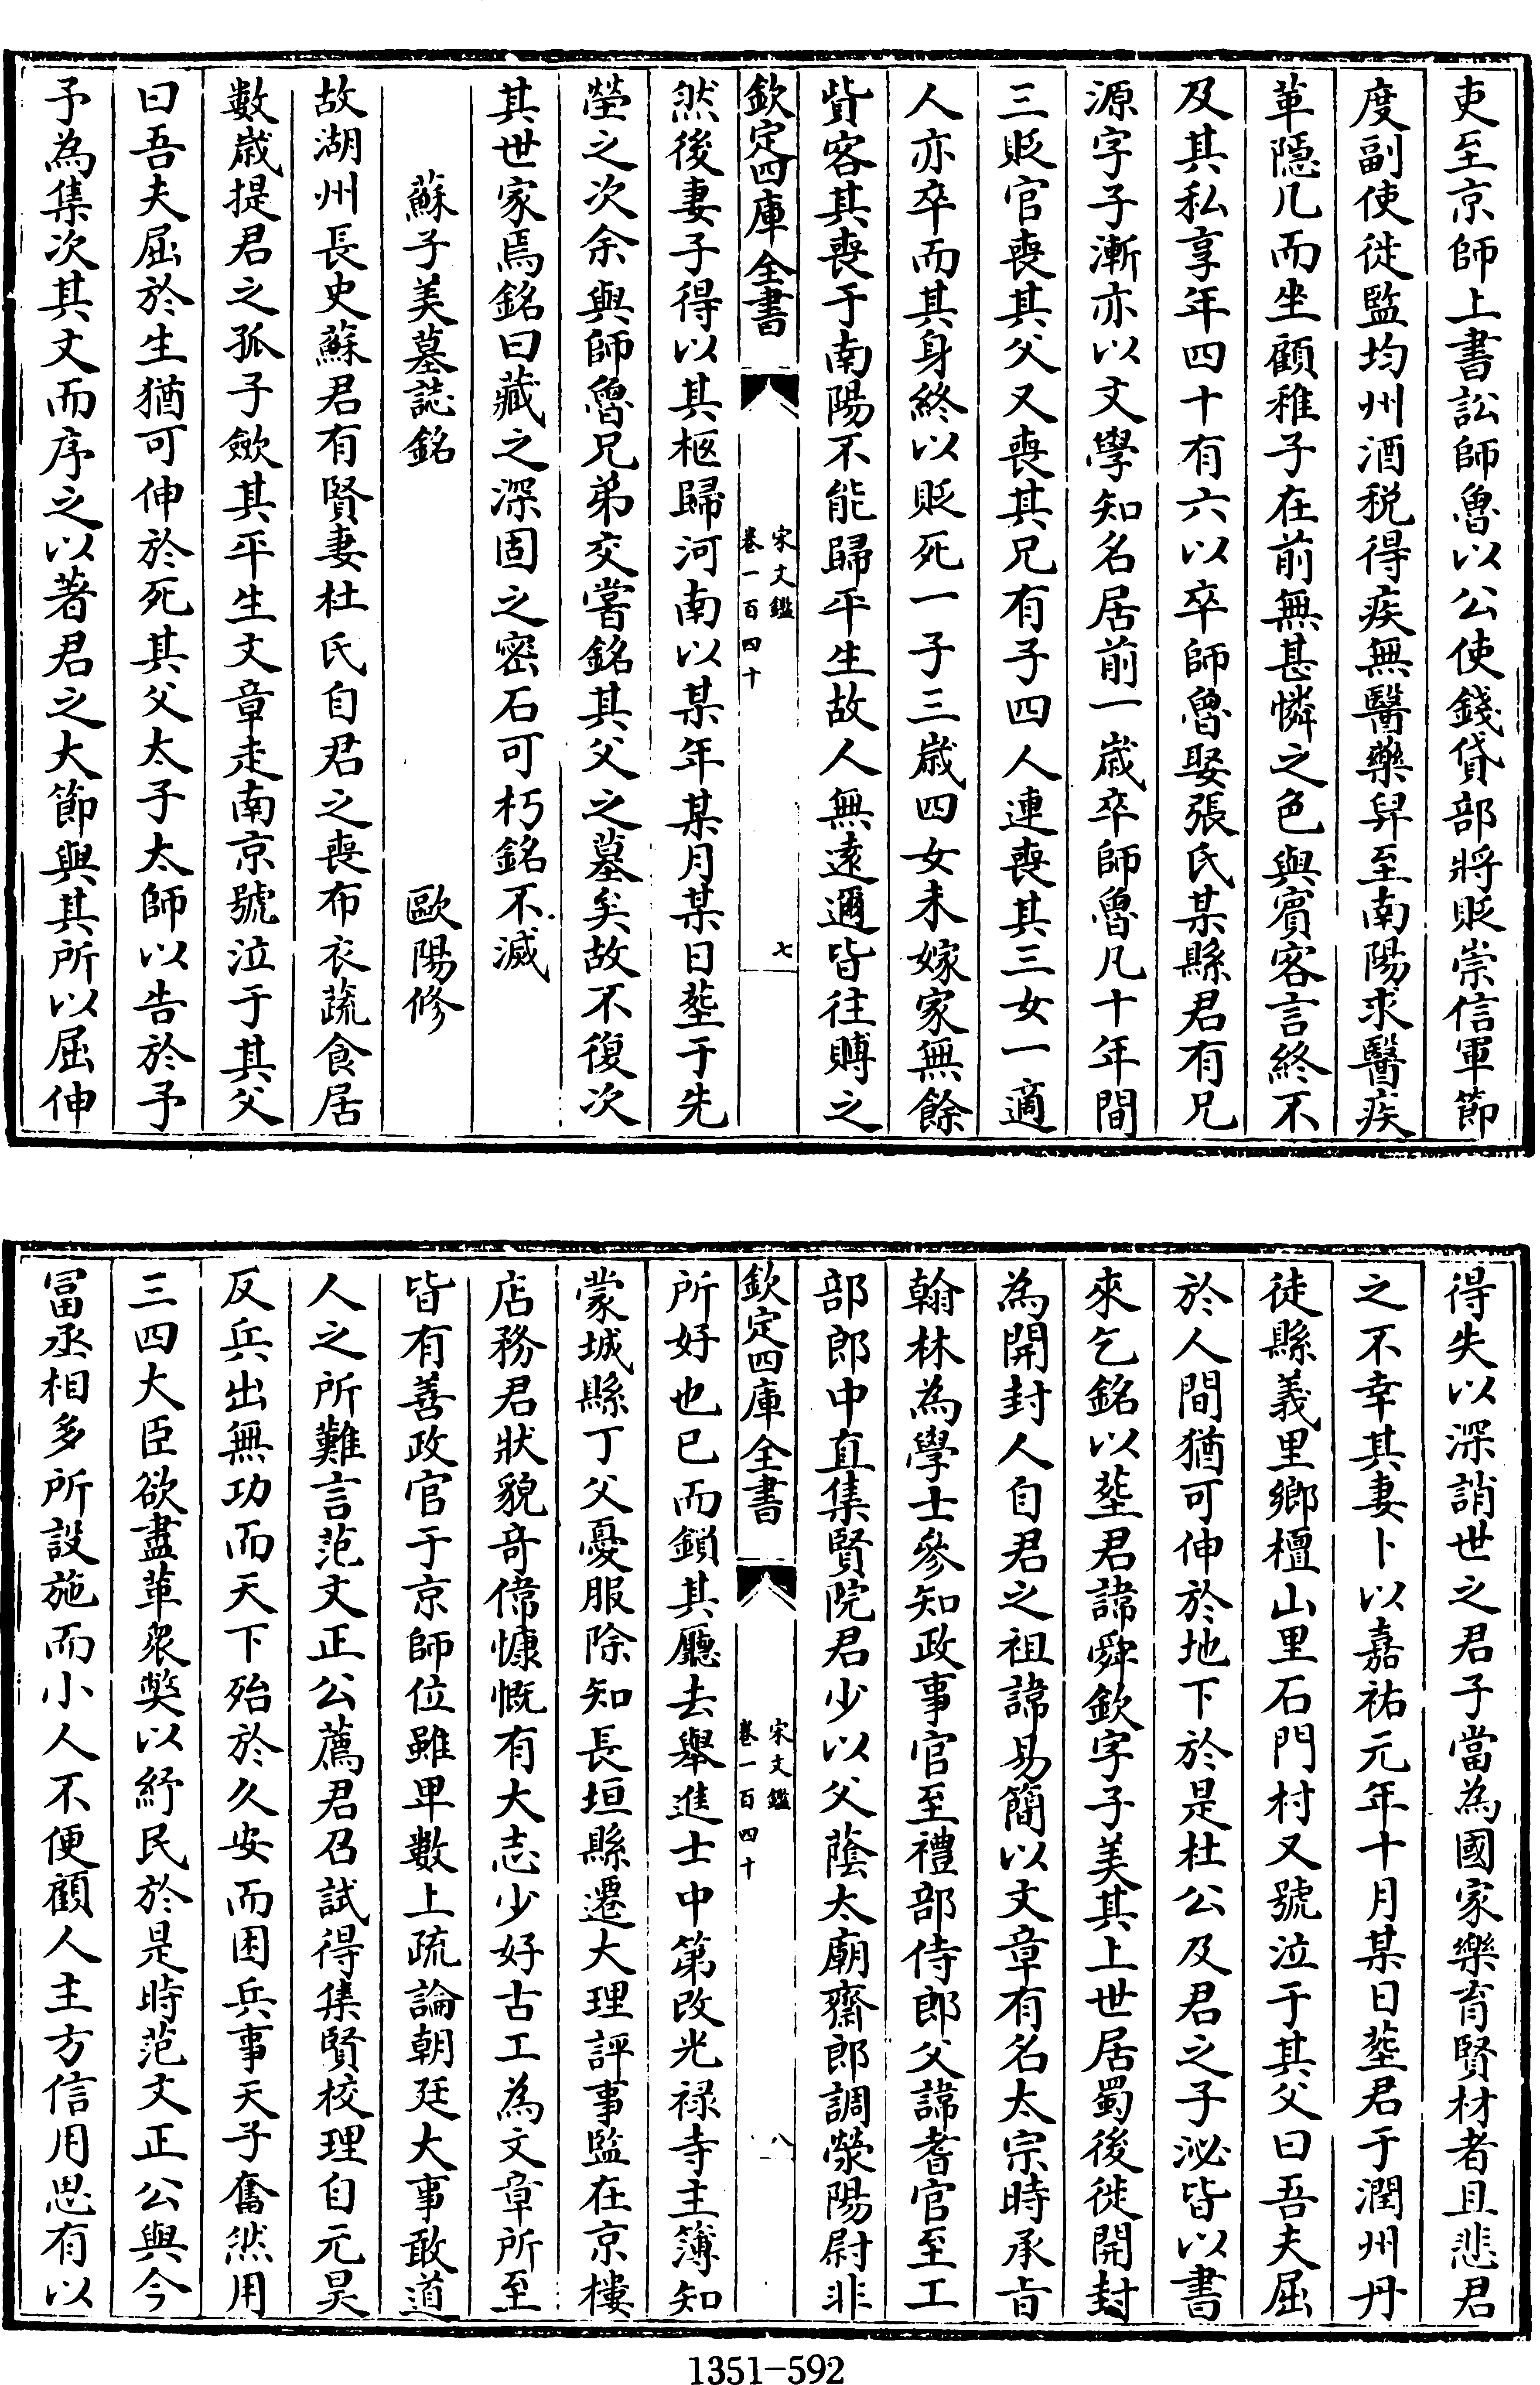 吏至京師上書訟師魯以公使錢貸部將貶崇信軍節
度副使徙監均州酒税得疾無醫藥舁至南陽求醫疾
革隱几而坐顧稚子在前無甚憐之色與賓客言終不
及其私享年四十有六以卒師魯娶張氏某縣君有兄
源字子漸亦以文學知名居前一歲卒師魯凡十年間
三貶官喪其父又喪其兄有子四人連喪其三女一適
人亦卒而其身終以貶死一子三歲四女未嫁家無餘
貲客其喪于南陽不能歸平生故人無遠邇皆往賻之
欽定四庫全書
宋文鑑
卷一百四十
七
然後妻子得以其柩歸河南以某年某月某日塟于先
塋之次余與師魯兄弟交嘗銘其父之墓矣故不復次
其世家焉銘曰藏之深固之密石可朽銘不滅
蘇子美墓誌銘 歐陽修
故湖州長史蘇君有賢妻杜氏自君之喪布衣蔬食居
數歲提君之孤子歛其平生文章走南京號泣于其父
曰吾夫屈於生猶可伸於死其父太子太師以告於予
予為集次其文而序之以著君之大節與其所以屈伸
得失以深誚世之君子當為國家樂育賢材者且悲君
之不幸其妻卜以嘉祐元年十月某日塟君于潤州丹
徒縣義里鄉檀山里石門村又號泣于其父曰吾夫屈
於人間猶可伸於地下於是杜公及君之子泌皆以書
來乞銘以塟君諱舜欽字子美其上世居蜀後徙開封
為開封人自君之祖諱易簡以文章有名太宗時承旨
翰林為學士參知政事官至禮部侍郎父諱耆官至工
部郎中直集賢院君少以父蔭太廟齋郎調滎陽尉非
欽定四庫全書
宋文鑑
卷一百四十
八
所好也已而鎖其廳去舉進士中第改光禄寺主簿知
蒙城縣丁父憂服除知長垣縣遷大理評事監在京樓
店務君狀貌奇偉慷慨有大志少好古工為文章所至
皆有善政官于京師位雖卑數上疏論朝廷大事敢道
人之所難言范文正公薦君召試得集賢校理自元昊
反兵出無功而天下殆於久安而困兵事天子奮然用
三四大臣欲盡革衆弊以紓民於是時范文正公與今
冨丞相多所設施而小人不便顧人主方信用思有以
1351-592